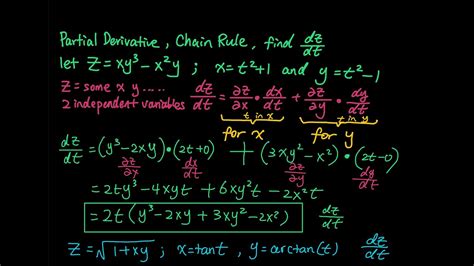 Partial Derivative, Chain Rule, find dz/dt
let Z=xy³-x²y ; x=t²+1 and y=t²-1
Z= some xy.....
2 independent variables
dz/dt = ∂z/∂x · dx/dt + ∂z/∂y · dy/dt
t in x
t in y
for x
for y
dz/dt = (y³-2xy)·(2t+0) + (3xy²-x²)·(2t-0)
∂z/∂x dx/dt ∂z/∂y dy/dt
= 2ty³-4xyt + 6xy²t-2x²t
= 2t(y³-2xy+3xy²-2x²) dz/dt
Z=√1+xy ; x=tant , y=arctan(t) dz/dt